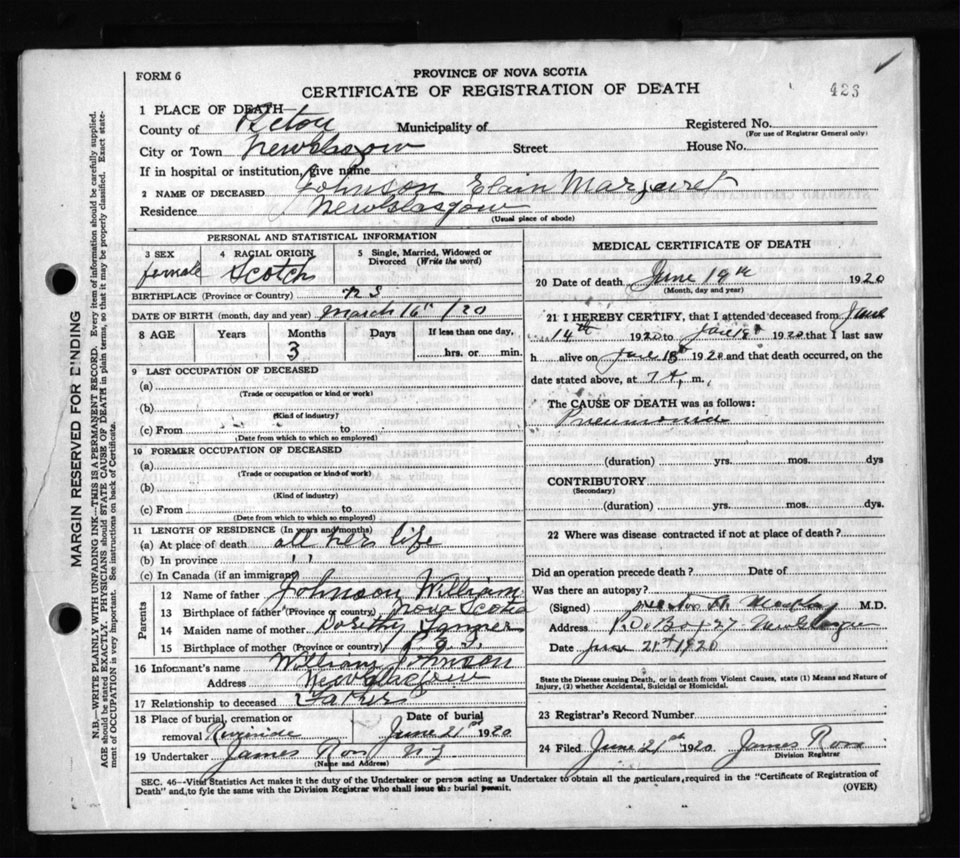 FORM 6
PROVINCE OF NOVA SCOTIA
CERTIFICATE OF REGISTRATION OF DEATH
423
1 PLACE OF DEATH—
County of Pictou Municipality of Registered No.
(For use of Registrar General only)
City or Town New Glasgow Street House No.
If in hospital or institution, give name
2 NAME OF DECEASED Johnson Elain Margaret
Residence New Glasgow
(Usual place of abode)
PERSONAL AND STATISTICAL INFORMATION
3 SEX female 4 RACIAL ORIGIN Scotch 5 Single, Married, Widowed or Divorced (Write the word)
BIRTHPLACE (Province or Country) N S
DATE OF BIRTH (month, day and year) March 16th /20
8 AGE Years Months 3 Days If less than one day, hrs. or min.
9 LAST OCCUPATION OF DECEASED
(a)
(Trade or occupation or kind of work)
(b)
(Kind of industry)
(c) From to
(Date from which to which so employed)
10 FORMER OCCUPATION OF DECEASED
(a)
(Trade or occupation or kind of work)
(b)
(Kind of industry)
(c) From to
(Date from which to which so employed)
11 LENGTH OF RESIDENCE (In years and months)
(a) At place of death all her life
(b) In province " "
(c) In Canada (if an immigrant)
Parents
12 Name of father Johnson William
13 Birthplace of father (Province or country) Nova Scotia
14 Maiden name of mother Dorithy Tanner
15 Birthplace of mother (Province or country)
16 Informant's name William Johnson
Address New Glasgow
17 Relationship to deceased Father
18 Place of burial, cremation or removal Riverside Date of burial June 21st 1920
19 Undertaker James Ross N G
(Name and Address)
MEDICAL CERTIFICATE OF DEATH
20 Date of death June 19th 1920
(Month, day and year)
21 I HEREBY CERTIFY, that I attended deceased from June
14th 1920 to June 18th 1920 that I last saw
h alive on June 18th 1920 and that death occurred, on the
date stated above, at 7 A. m.
The CAUSE OF DEATH was as follows:
Pneumonia
(duration) yrs. mos. dys
CONTRIBUTORY
(Secondary)
(duration) yrs. mos. dys
22 Where was disease contracted if not at place of death?
Did an operation precede death? Date of
Was there an autopsy?
(Signed) M.D.
Address P.O. Box 27 New Glasgow
Date June 21st 1920
State the Disease causing Death, or in death from Violent Causes, state (1) Means and Nature of Injury, (2) whether Accidental, Suicidal or Homicidal.
23 Registrar's Record Number
24 Filed June 21st 1920 James Ross
Division Registrar
SEC. 46—Vital Statistics Act makes it the duty of the Undertaker or person acting as Undertaker to obtain all the particulars required in the "Certificate of Registration of
Death" and to fyle the same with the Division Registrar who shall issue the burial permit. (OVER)
MARGIN RESERVED FOR BINDING
N.B.—WRITE PLAINLY WITH UNFADING INK—THIS IS A PERMANENT RECORD. Every item of information should be carefully supplied.
AGE should be stated EXACTLY. PHYSICIANS should STATE CAUSE OF DEATH in plain terms, so that it may be properly classified. Exact statement of OCCUPATION is very important. See instructions on back of Certificate.